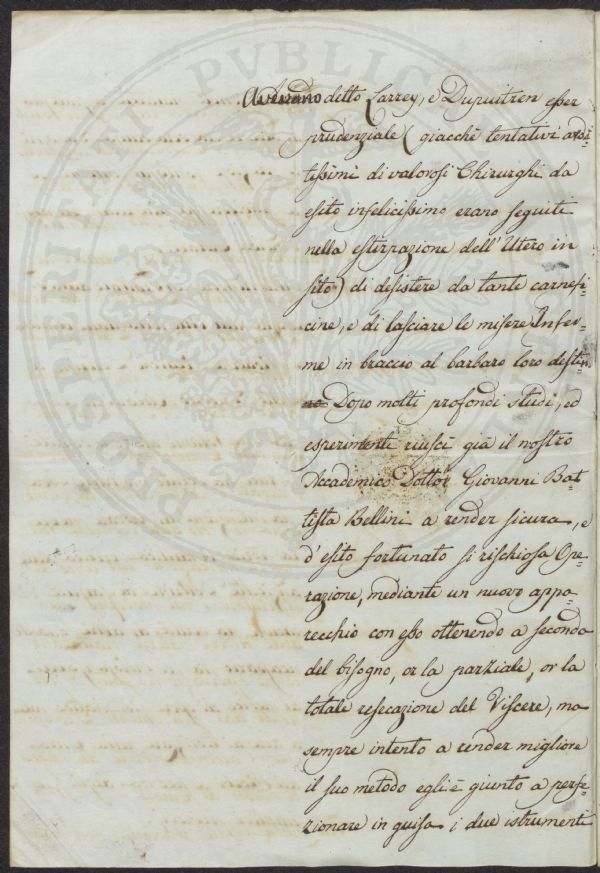 Avevano detto Larrey, e Dupuitren esser
prudenziale (giacchè tentativi ardi-
tissimi di valorosi Chirurghi da
esito infelicissimo erano seguiti
nella estirpazione dell'Utero in
sito) di desistere da tante carnefi-
cine, e di lasciare le misere Infer-
me in braccio al barbaro loro desti-
no Dopo molti profondi studi, ed
esperimenti riuscì già il nostro
Accademico Dottor Giovanni Bat-
tista Bellini a render sicura, e
d'esito fortunato sì rischiosa Ope-
razione, mediante un nuovo appa-
recchio con esso ottenendo a seconda
del bisogno, or la parziale, or la
totale resecazione del Viscere, ma
sempre intento a render migliore
il suo metodo egli è giunto a perfe-
zionare in guisa i due istrumenti
PROSPERITATI PUBLICAE